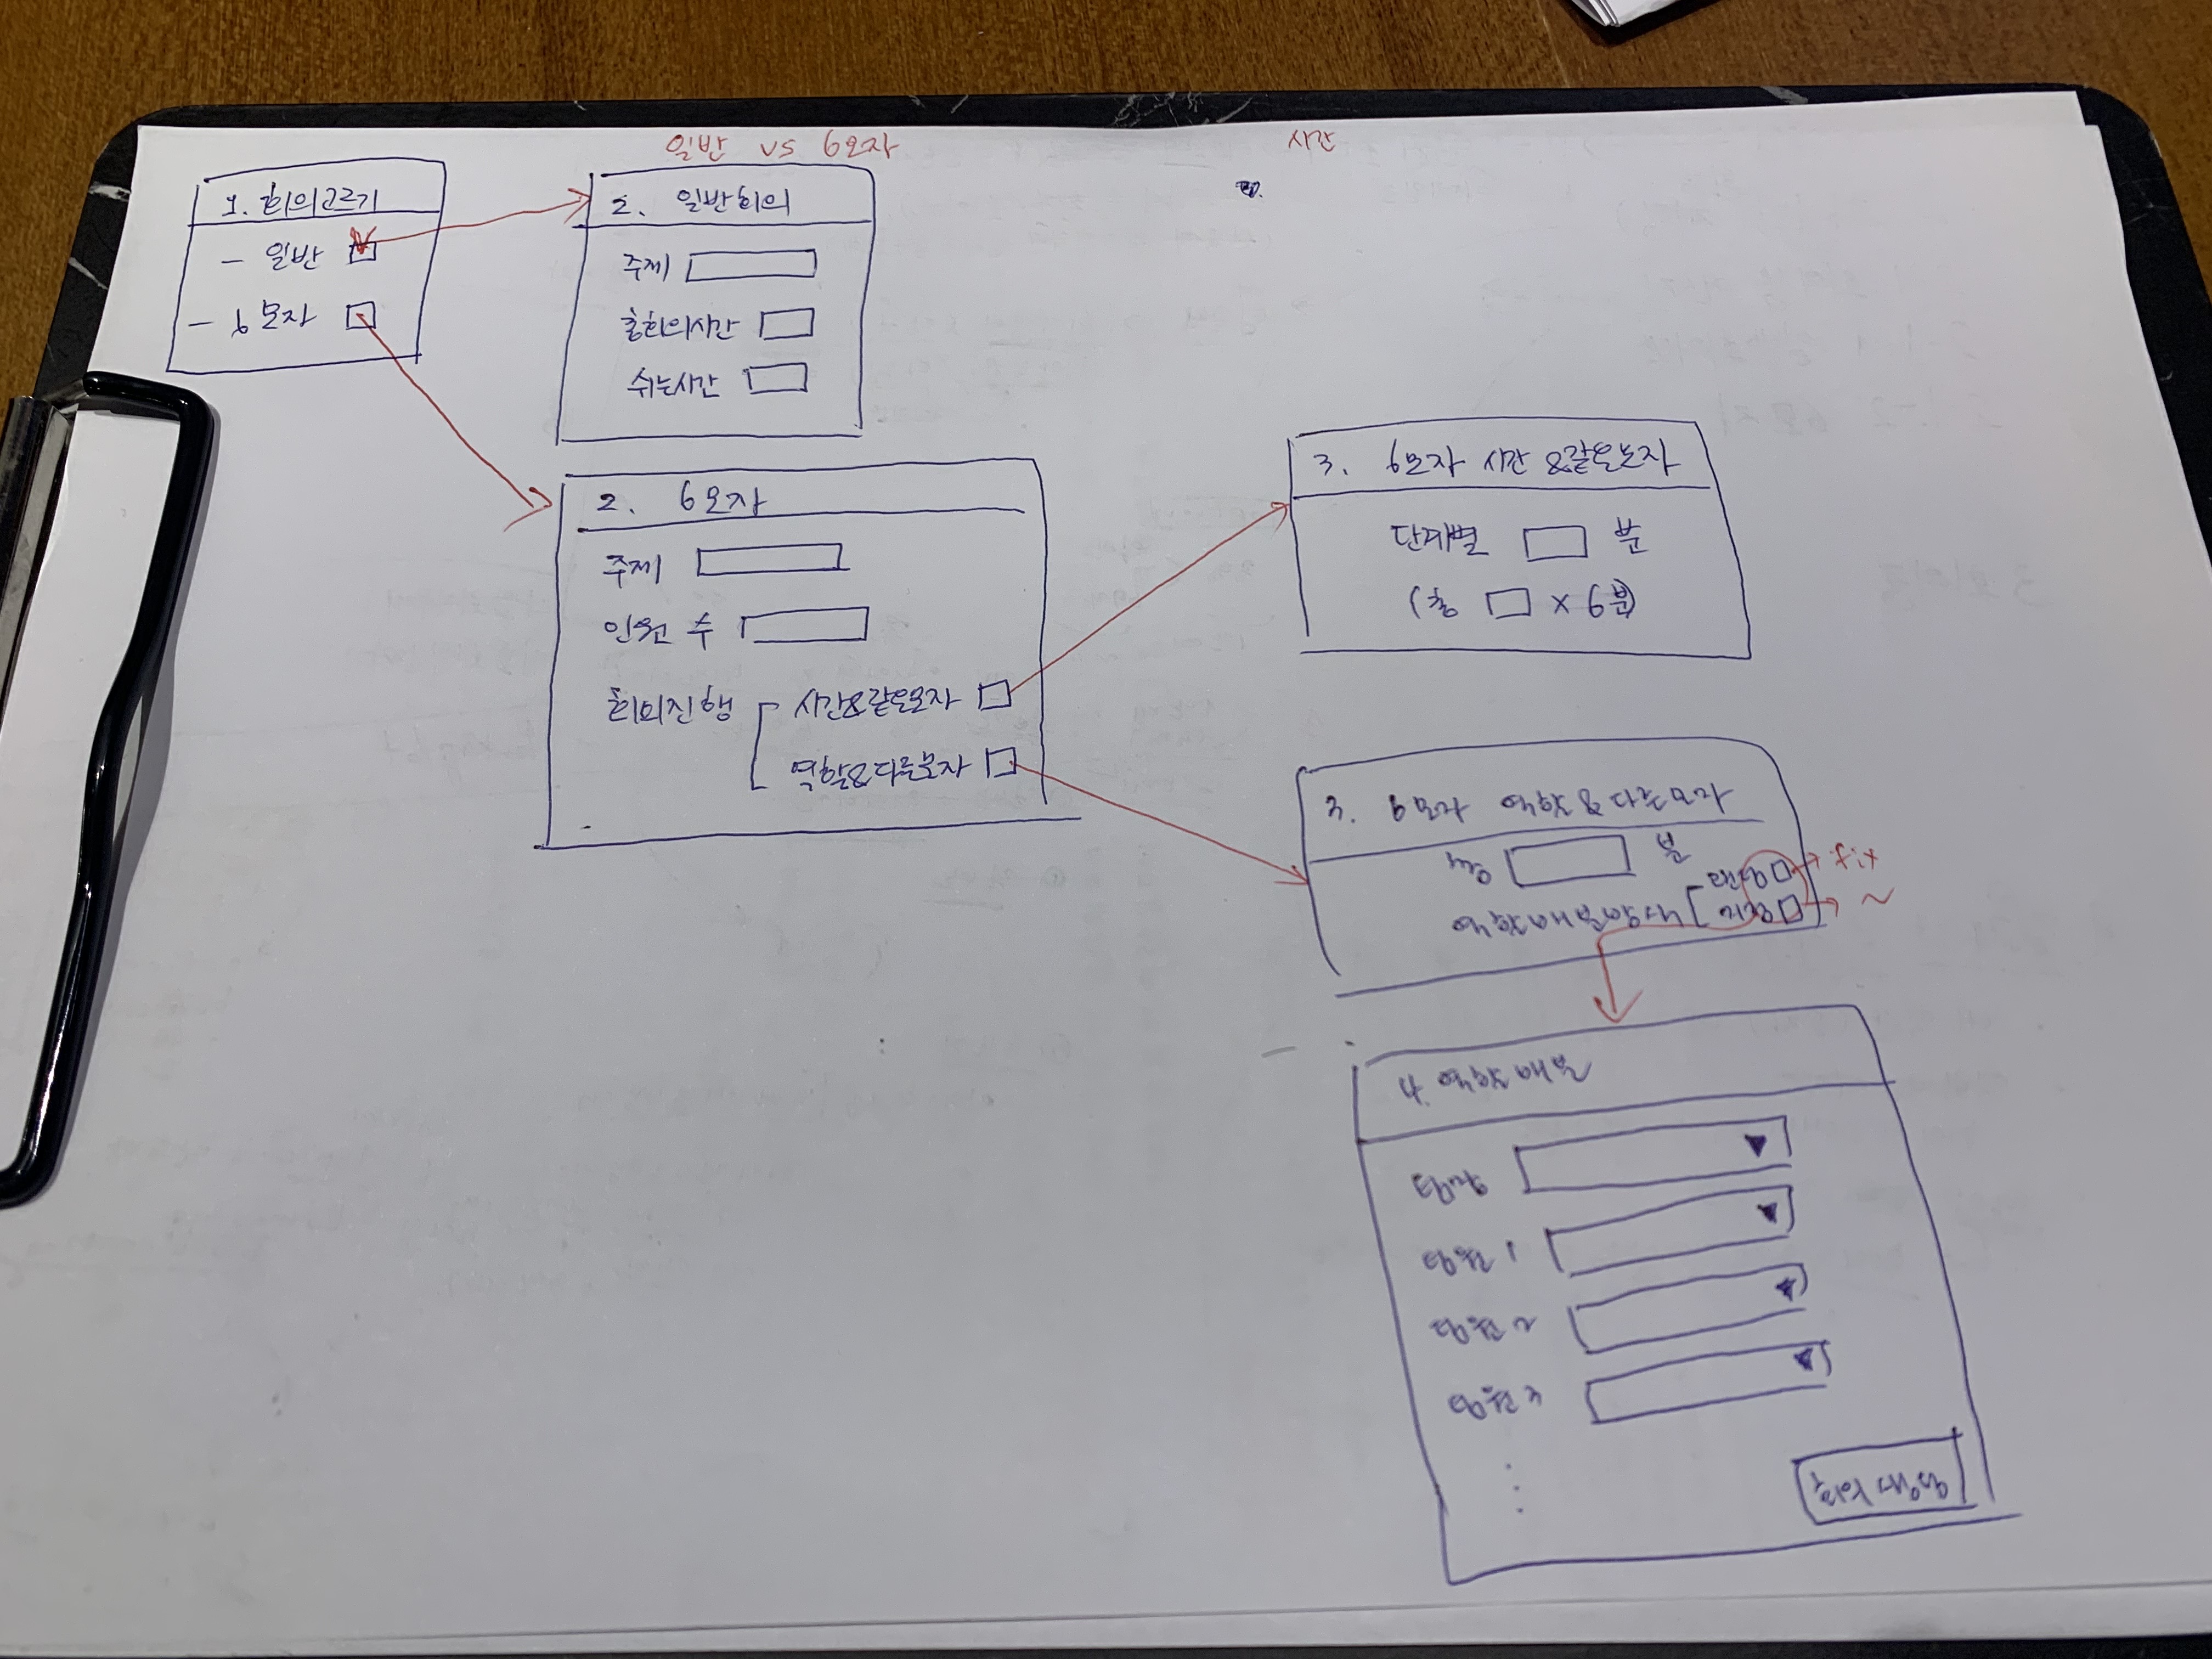 일반 vs 6모자
시간
1. 회의고르기
- 일반
- 6모자
2. 일반회의
주제
총회의시간
쉬는시간
2. 6모자
주제
인원 수
회의진행
시간&같은모자
역할&다른모자
3. 6모자 시간&같은모자
단계별 분
(총 × 6분)
3. 6모자 역할&다른모자
총 분
역할배분방식
랜덤 → fix
지정 → ~
4. 역할배분
팀장
팀원 1
팀원 2
팀원 3
회의 생성